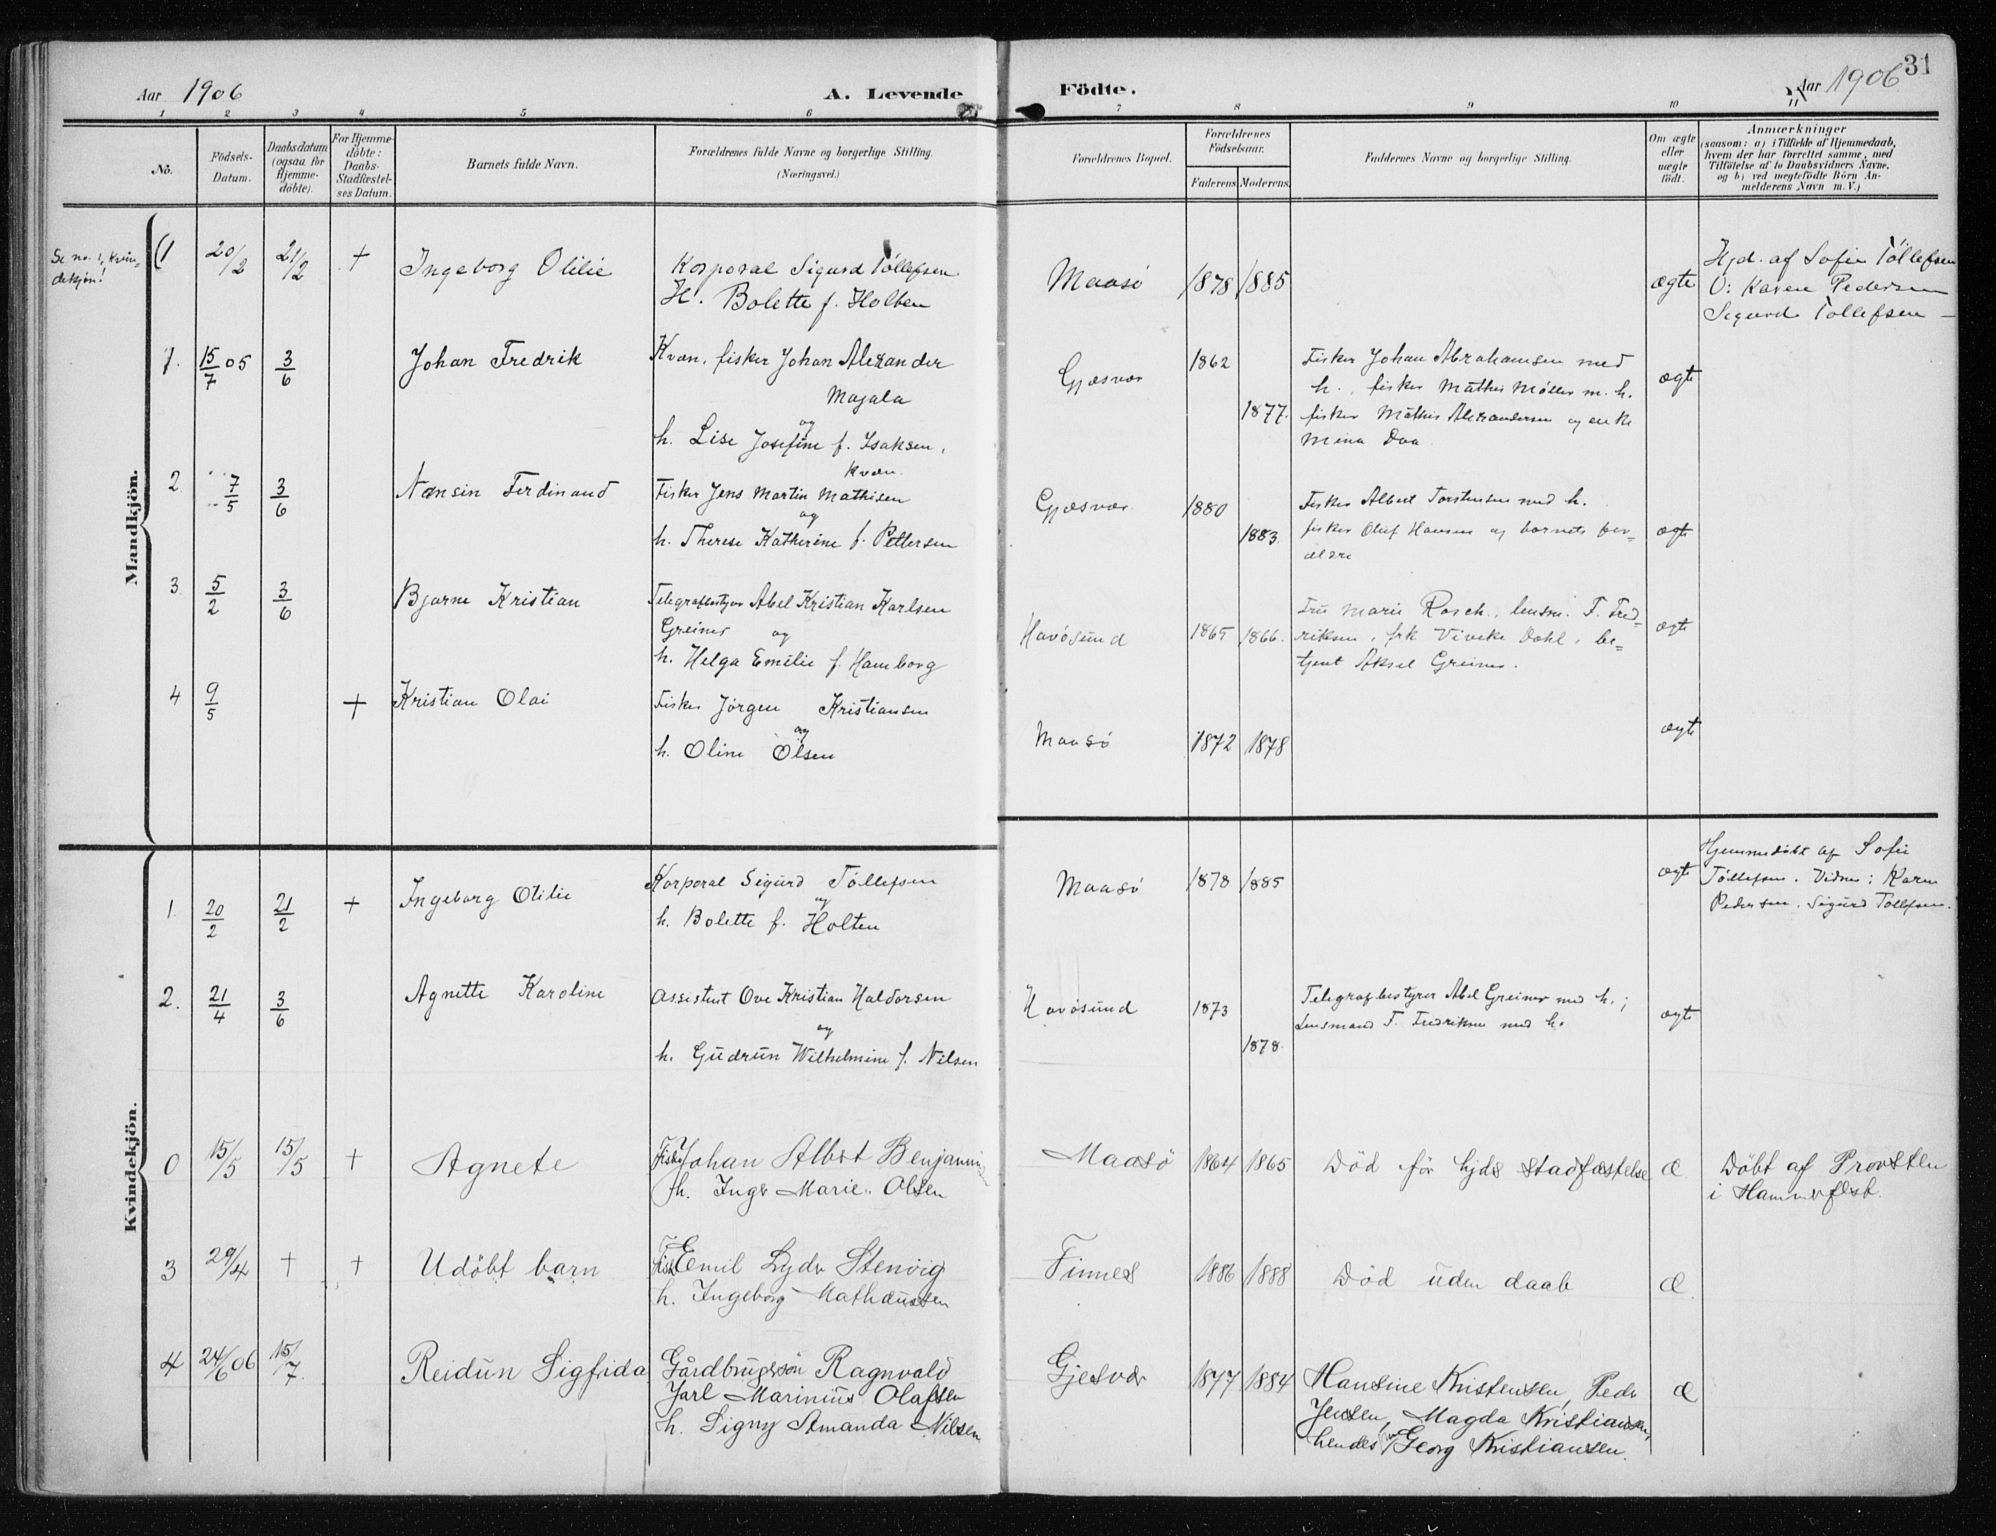 31
Aar 1906
A. Levende
Födte.
Aar 1906
1 2 3 4 5 6 7 8 9 10
No.
Födsels-
Datum.
Daabsdatum
(ogsaa for
Hjemme-
döbte).
For Hjemme-
döbte:
Daabs-
Stadfæstel-
ses Datum.
Barnets fulde Navn.
Forældrenes fulde Navne og borgerlige Stilling.
(Næringsvei.)
Forældrenes Bopæl.
Forældrenes
Födselsaar.
Faderens. Moderens.
Faddernes Navne og borgerlige Stilling.
Om ægte
eller
uægte
födt.
Anmærkninger
(saasom: a) i Tilfælde af Hjemmedaab,
hvem der har forrettet samme, med
Tilföielse af to Daabsvidners Navne,
og b) ved uægtefödte Börn An-
melderens Navn m. V.)
Mandkjön.
Se no. 1, Kvin-
dekjøn!
(1 20/2 21/2 + Ingeborg Olilie
Korporal Sigurd Töllefsen
H. Bolette f. Holten
Maasö 1878 1885 ægte
Hjd. af Sofie Töllefsen
V: Karen Pedersen
Sigurd Tollefsen
1. 15/7 05 3/6 Johan Fredrik
Kvæn, fisker Johan Alexander
Majala
og
h. Lise Josefine f. Isaksen,
kvæn.
Gjæsvær 1862 1877.
Fisker Johan Abrahamsen med
h., fisker Mathis Møller m. h.
fisker Mathis Alexandersen og enke
Mina Daa
ægte
2 7/5 3/6 Nansin Ferdinand
Fisker Jens Martin Mathisen
og
h. Therese Katherine f. Pettersen
Gjæsvær 1880 1883.
Fisker Albert Torstensen med h.
fisker Oluf Hansen og barnets for-
ældre
ægte
3 5/2 3/6 Bjarne Kristian
Telegrafbestyrer Abel Kristian Karlsen
Greiner og
h. Helga Emilie f. Hamborg
Havösund 1865 1866.
Fru Marie Rosch, lensm. F. Fred-
riksen, frk Viveke Dahl, be-
tjent Aksel Greiner.
ægte
4 9/5 + Kristian Olai
Fisker Jörgen Kristiansen
og
h. Oline Olsen
Maasö 1872 1878 ægte
Kvindekjön.
1. 20/2 21/2 + Ingeborg Olilie
Korporal Sigurd Töllefsen
og
h. Bolette f. Holten
Maasö 1878 1885 ægte
Hjemmedöbt af Sofie
Töllefsen. Vidner: Karen
Pedersen. Sigurd Töllefsen.
2. 21/4 3/6 Agnette Karoline
Assistent Ove Kristian Haldorsen
og
h. Gudrun Wilhelmine f. Nilsen
Havösund 1873 1878.
Telegrafbestyrer Abel Greiner med h.;
Lensmand F. Fredriksen med h.
ægte
0 15/5 15/5 + Agnete
Fisk Johan Albert Benjaminsen
h. Inger Marie Olsen
Maasö 1864 1865
Död för hjds stadfæstelse
Æ
Döbt af Provsten
i Hammerfest.
3 29/4 + + Udöbt barn
Fisk Emil Lyder Stenvig
h. Ingeborg Mathæussen
Finnes 1886 1888
Död uden daab
Æ.
4 24/6 06 15/7. Reidun Sigfrida
Gårdbrugersön Ragnvald
Jarl Marinius Olafsen
h. Signy Amanda Nilsen
Gjesvær 1877 1884
Hansine Kristensen, Peder
Jensen, Magda Kristiansen,
hendes Georg Kristiansen.
Æ